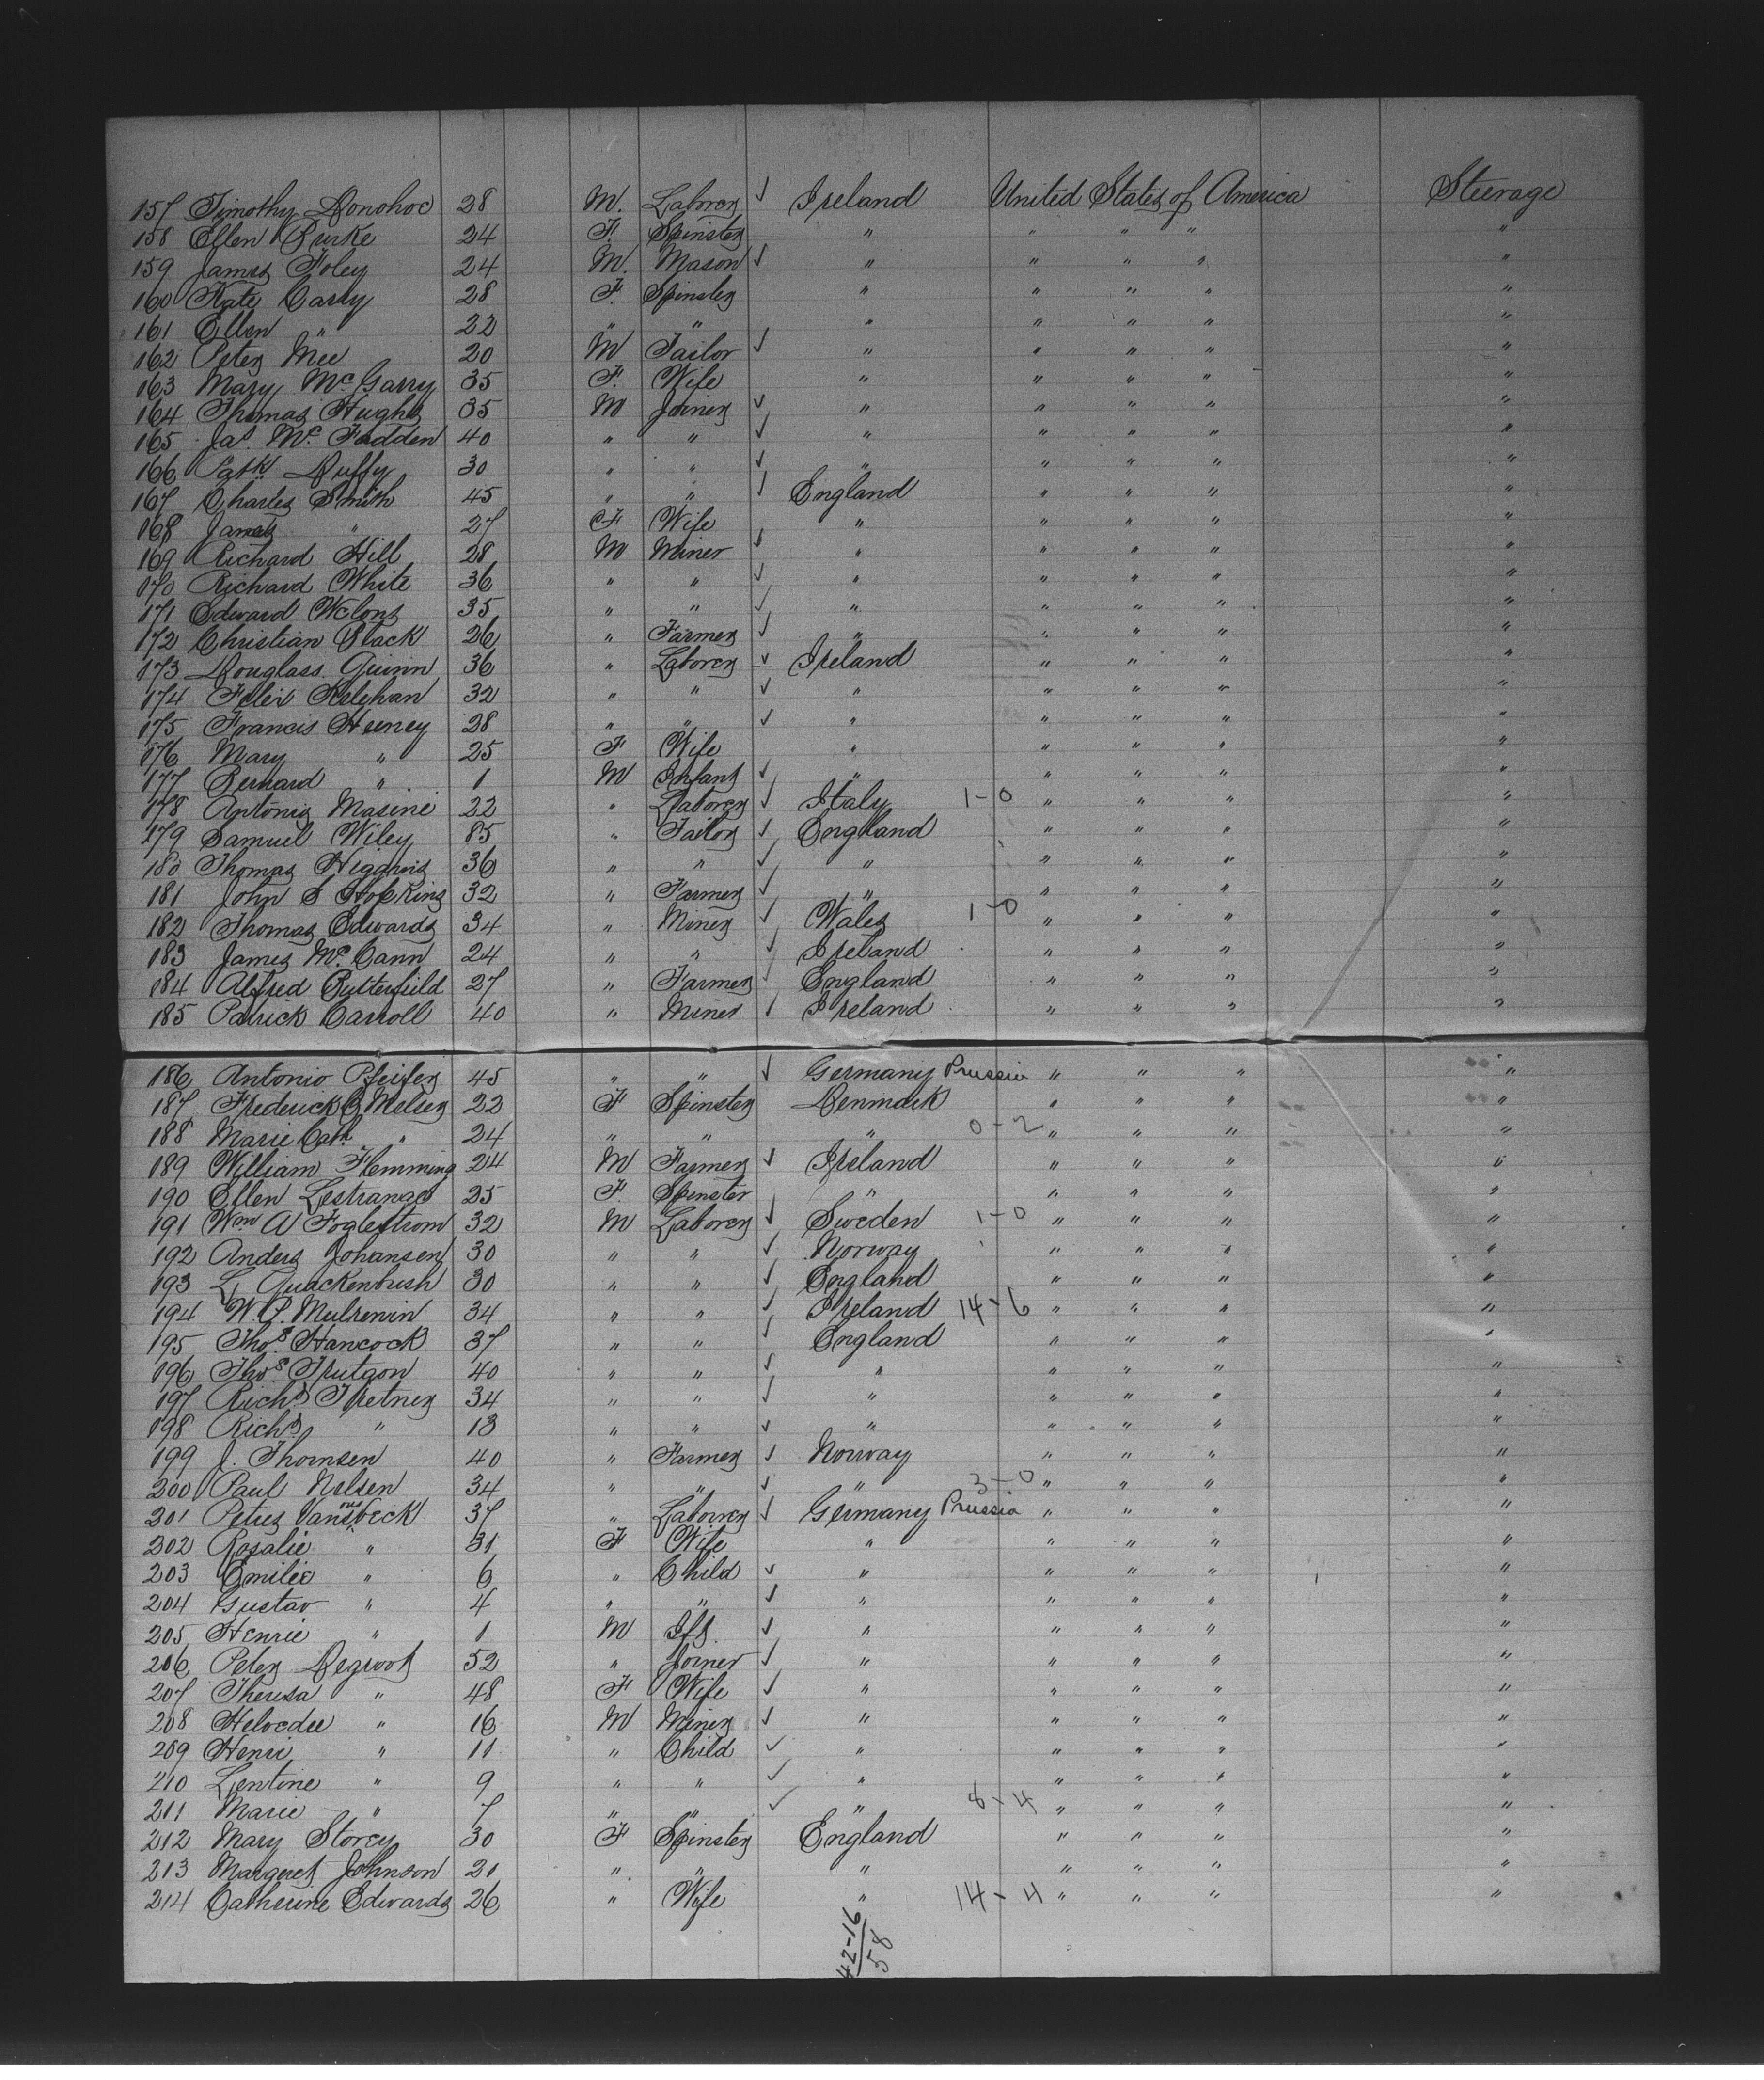 157 Timothy Donohoe 28 M. Laborer ✓ Ireland United States of America Steerage
158 Ellen Burke 24 F. Spinster " " " " "
159 James Foley 24 M. Mason ✓ " " " " "
160 Kate Carry 28 F. Spinster " " " " "
161 Ellen " 22 " " " " " " "
162 Peter Mee 20 M Tailor ✓ " " " " "
163 Mary McGarry 35 F. Wife " " " " "
164 Thomas Hughes 35 M Joiner ✓ " " " " "
165 Jas. Mc Fadden 40 " " ✓ " " " " "
166 Patk Duffy 30 " " ✓ " " " " "
167 Charles Smith 45 " " ✓ England " " " "
168 " 27 F Wife " " " " "
169 Richard Hill 28 M Miner ✓ " " " " "
170 Richard White 36 " " ✓ " " " " "
171 Edward 35 " " ✓ " " " " "
172 Christian Slack 26 " Farmer ✓ " " " " "
173 Douglass Quinn 36 " Laborer ✓ Ireland " " " "
174 Felix Kelehan 32 " " ✓ " " " " "
175 Francis Heeney 28 " " ✓ " " " " "
176 Mary " 25 F Wife " " " " "
177 Bernard " 1 M Infant ✓ " " " " "
178 Antonio Masine 22 " Laborer ✓ Italy 1-0 " " " "
179 Samuel Wiley 35 " Tailor ✓ England " " " "
180 Thomas Higgins 36 " " ✓ " " " " "
181 John S Hopkins 32 " Farmer ✓ " " " " "
182 Thomas Edwards 34 " Miner ✓ Wales 1-0 " " " "
183 James McCann 24 " " ✓ Ireland " " " "
184 Alfred Butterfield 27 " Farmer ✓ England " " " "
185 Patrick Carroll 40 " Miner ✓ Ireland " " " "
186 Antonio Pfeifer 45 " " ✓ Germany Prussia " " " "
187 Frederick C Melsen 22 F Spinster Denmark " " " "
188 Marie Cath " 24 " " " 0-2 " " " "
189 William Flemming 24 M Farmer ✓ Ireland " " " "
190 Ellen Lestrange 25 F. Spinster " " " " "
191 Wm A Foglestrom 32 M Laborer ✓ Sweden 1-0 " " " "
192 Anders Johansen 30 " " ✓ Norway " " " "
193 L Quackenbush 30 " " ✓ England " " " "
194 W. P. Mulrenin 34 " " ✓ Ireland 14-6 " " " "
195 Thos Hancock 37 " " ✓ England " " " "
196 Thos 40 " " ✓ " " " " "
197 Richd 34 " " ✓ " " " " "
198 Richd " 13 " " ✓ " " " " "
199 J. Thomsen 40 " Farmer ✓ Norway " " " "
200 Paul Nelsen 34 " " ✓ " 3-0 " " " "
201 Petus 37 " Laborer ✓ Germany Prussia " " " "
202 Rosalie " 31 F Wife " " " " "
203 Emilie " 6 " Child ✓ " " " " "
204 Gustav " 4 " " ✓ " " " " "
205 Henrie " 1 M Ift. ✓ " " " " "
206 Peter Degroot 52 " Joiner ✓ " " " " "
207 Theresa " 48 F Wife ✓ " " " " "
208 " 16 M Miner ✓ " " " " "
209 Henri " 11 " Child ✓ " " " " "
210 Lentine " 9 " " ✓ " " " " "
211 Marie " 7 " " ✓ " 8-4 " " " "
212 Mary Storey 30 F Spinster England " " " "
213 Margaret Johnson 21 " " " " " " "
214 Catherine Edwards 26 " Wife " 14-4 " " " "
42-16
58